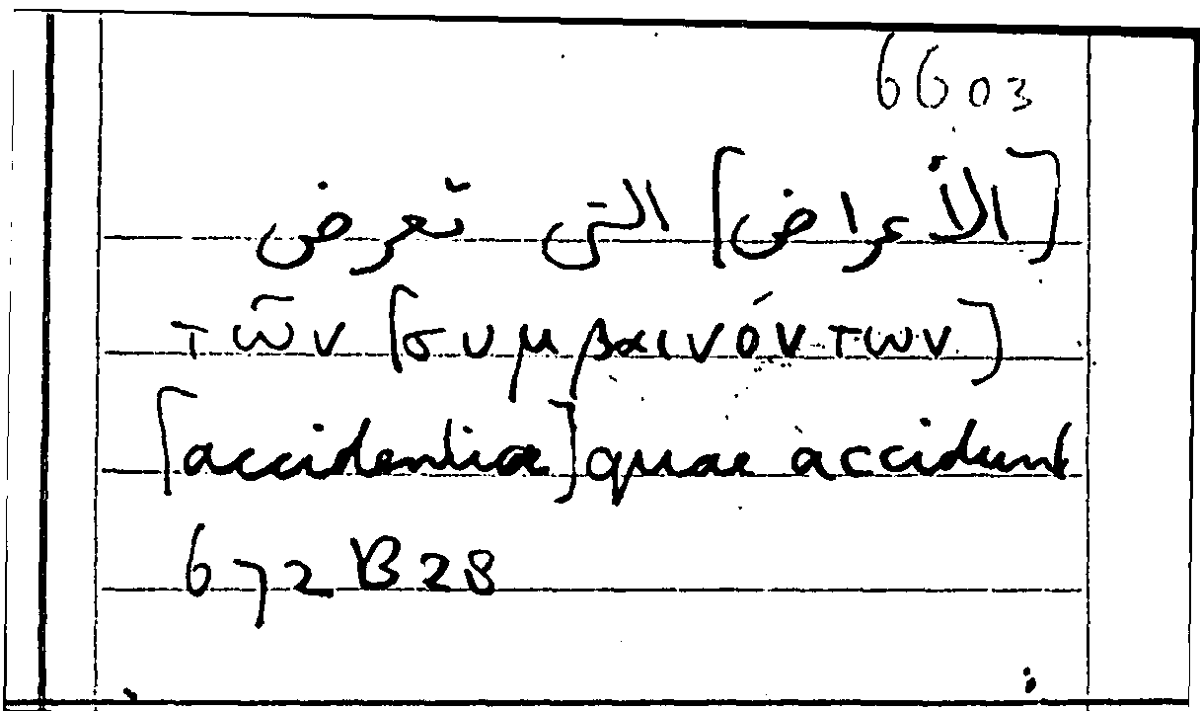 6603
[الأعراض] التى تعرض
τῶν [συμβαινόντων]
[accidentia] quae accidunt
672 B 28